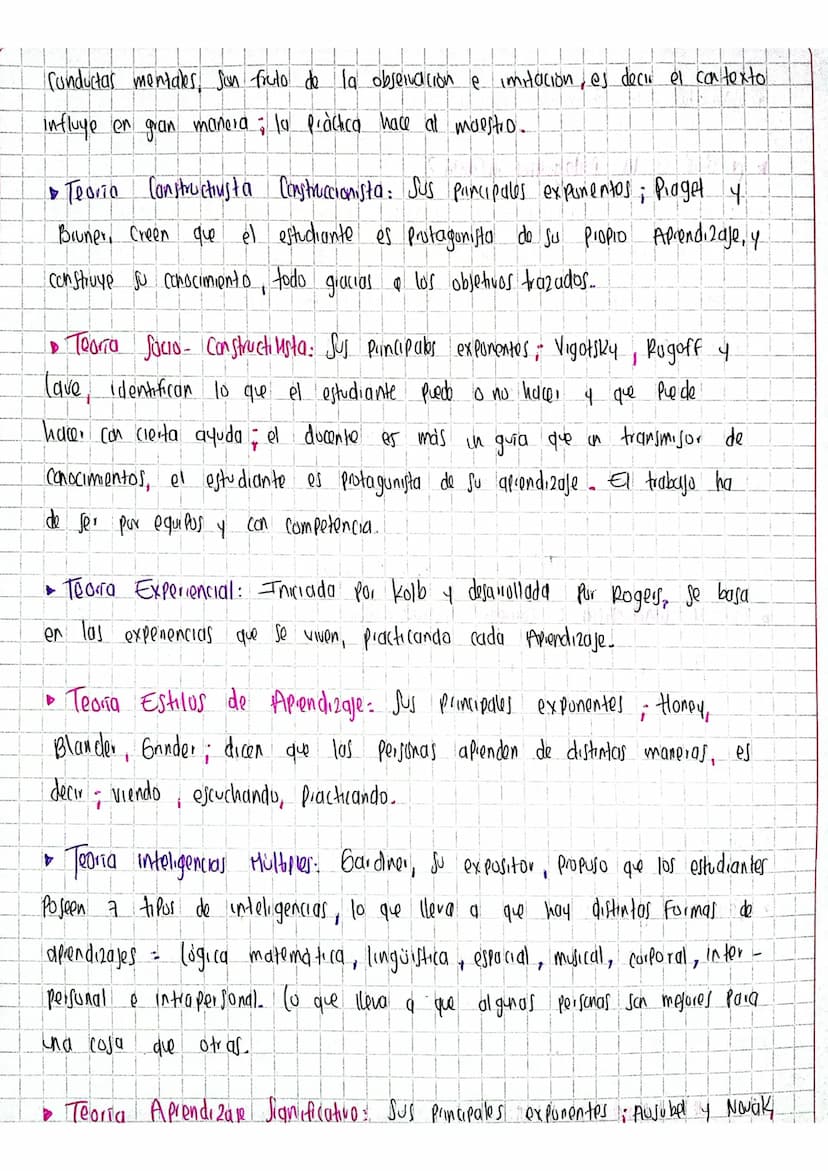 Conductas mentales, son fruto de la observación e imitación, es decir el contexto
influye en gran manera; la práctica hace al maestro.
Teoría Constructivista Construccionista: Sus principales exponentes; Piaget y
Bruner, Creen que el estudiante es protagonista de su propio Aprendizaje, y
construye su conocimiento, todo gracias a los objetivos trazados..
Teoría Socio-Constructivista: Sus principales exponentes; Vigotsky, Rogoff y
Lave, identifican lo que el estudiante puede o no hacer y que Puede
hacer con cierta ayuda; el docente es más un guía que un transmisor de
conocimientos, el estudiante es protagonista de su aprendizaje. El trabajo ha
de ser por equipos y con competencia.
Teoría Experiencial: Iniciada por Kolb y desarrollada por Rogers, se basa
en las experiencias que se viven, practicando cada Aprendizaje.
Teoría Estilos de Aprendizaje: Sus principales exponentes; Honey,
Blander, Grinder; dicen que las personas aprenden de distintas maneras, es
decir; viendo, escuchando, practicando.
Teoría inteligencias Múltiples: Gardner, su expositor, propuso que los estudiantes
Poseen 7 tipos de inteligencias, lo que lleva a que hay distintas formas de
aprendizajes = lógica matemática, lingüística, espacial, musical, corporal, inter-
personal e intrapersonal. Lo que lleva a que algunas personas son mejores para
una cosa que otras.
Teoría Aprendizaje Significativo: Sus principales exponentes; Ausubel y Novak,